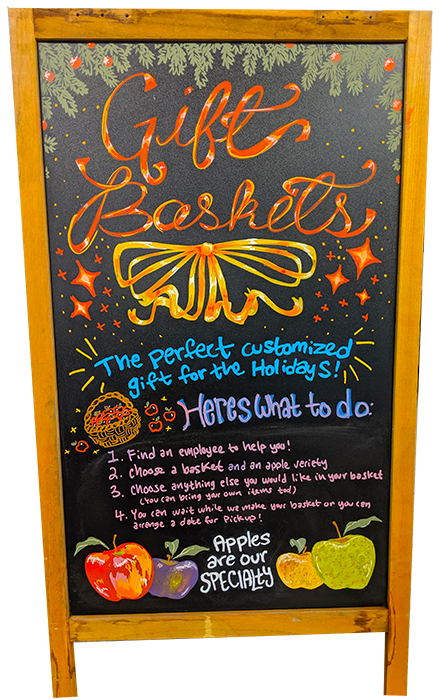 Gift
Baskets
The perfect customized
gift for the Holidays!
Heres What to do:
1. Find an employee to help you!
2. choose a basket and an apple veriety
3. Choose anything else you would like in your basket
(You can bring your own items too)
4. You can wait while we make your basket or you can
arrange a date for Pickup!
Apples
are our
SPECIALTY